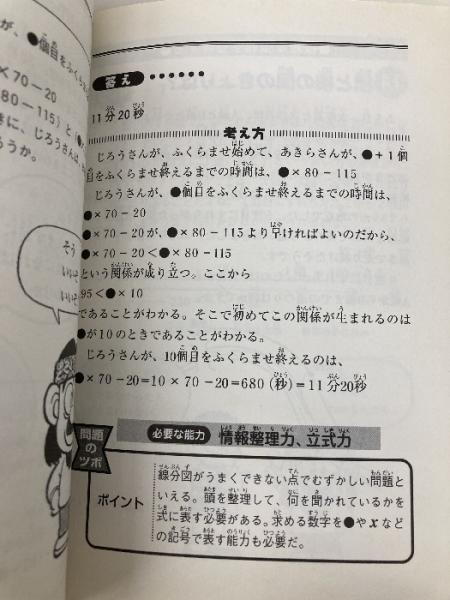 答え
11分20秒
考え方
じろうさんが、ふくらませ始めて、あきらさんが、●+1個
目をふくらませ終えるまでの時間は、●×80-115
じろうさんが、●個目をふくらませ終えるまでの時間は、
●×70-20
●×70-20が、●×80-115より早ければよいのだから、
●×70-20<●×80-115
という関係が成り立つ。ここから
95<●×10
であることがわかる。そこで初めてこの関係が生まれるのは
●が10のときであることがわかる。
じろうさんが、10個目をふくらませ終えるのは、
●×70-20=10×70-20=680(秒)=11分20秒
問題のツボ
必要な能力 情報整理力、立式力
ポイント
線分図がうまくできない点でむずかしい問題と
いえる。頭を整理して、何を聞かれているかを
式に表す必要がある。求める数字を●やxなど
の記号で表す能力も必要だ。
が、●個目をふく
×70-20
80-115)と(
きに、じろうさんは
ろうか。
そう